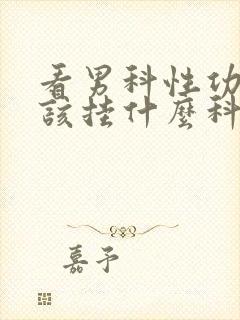 看男科性功
該挂什麼科
嘉予